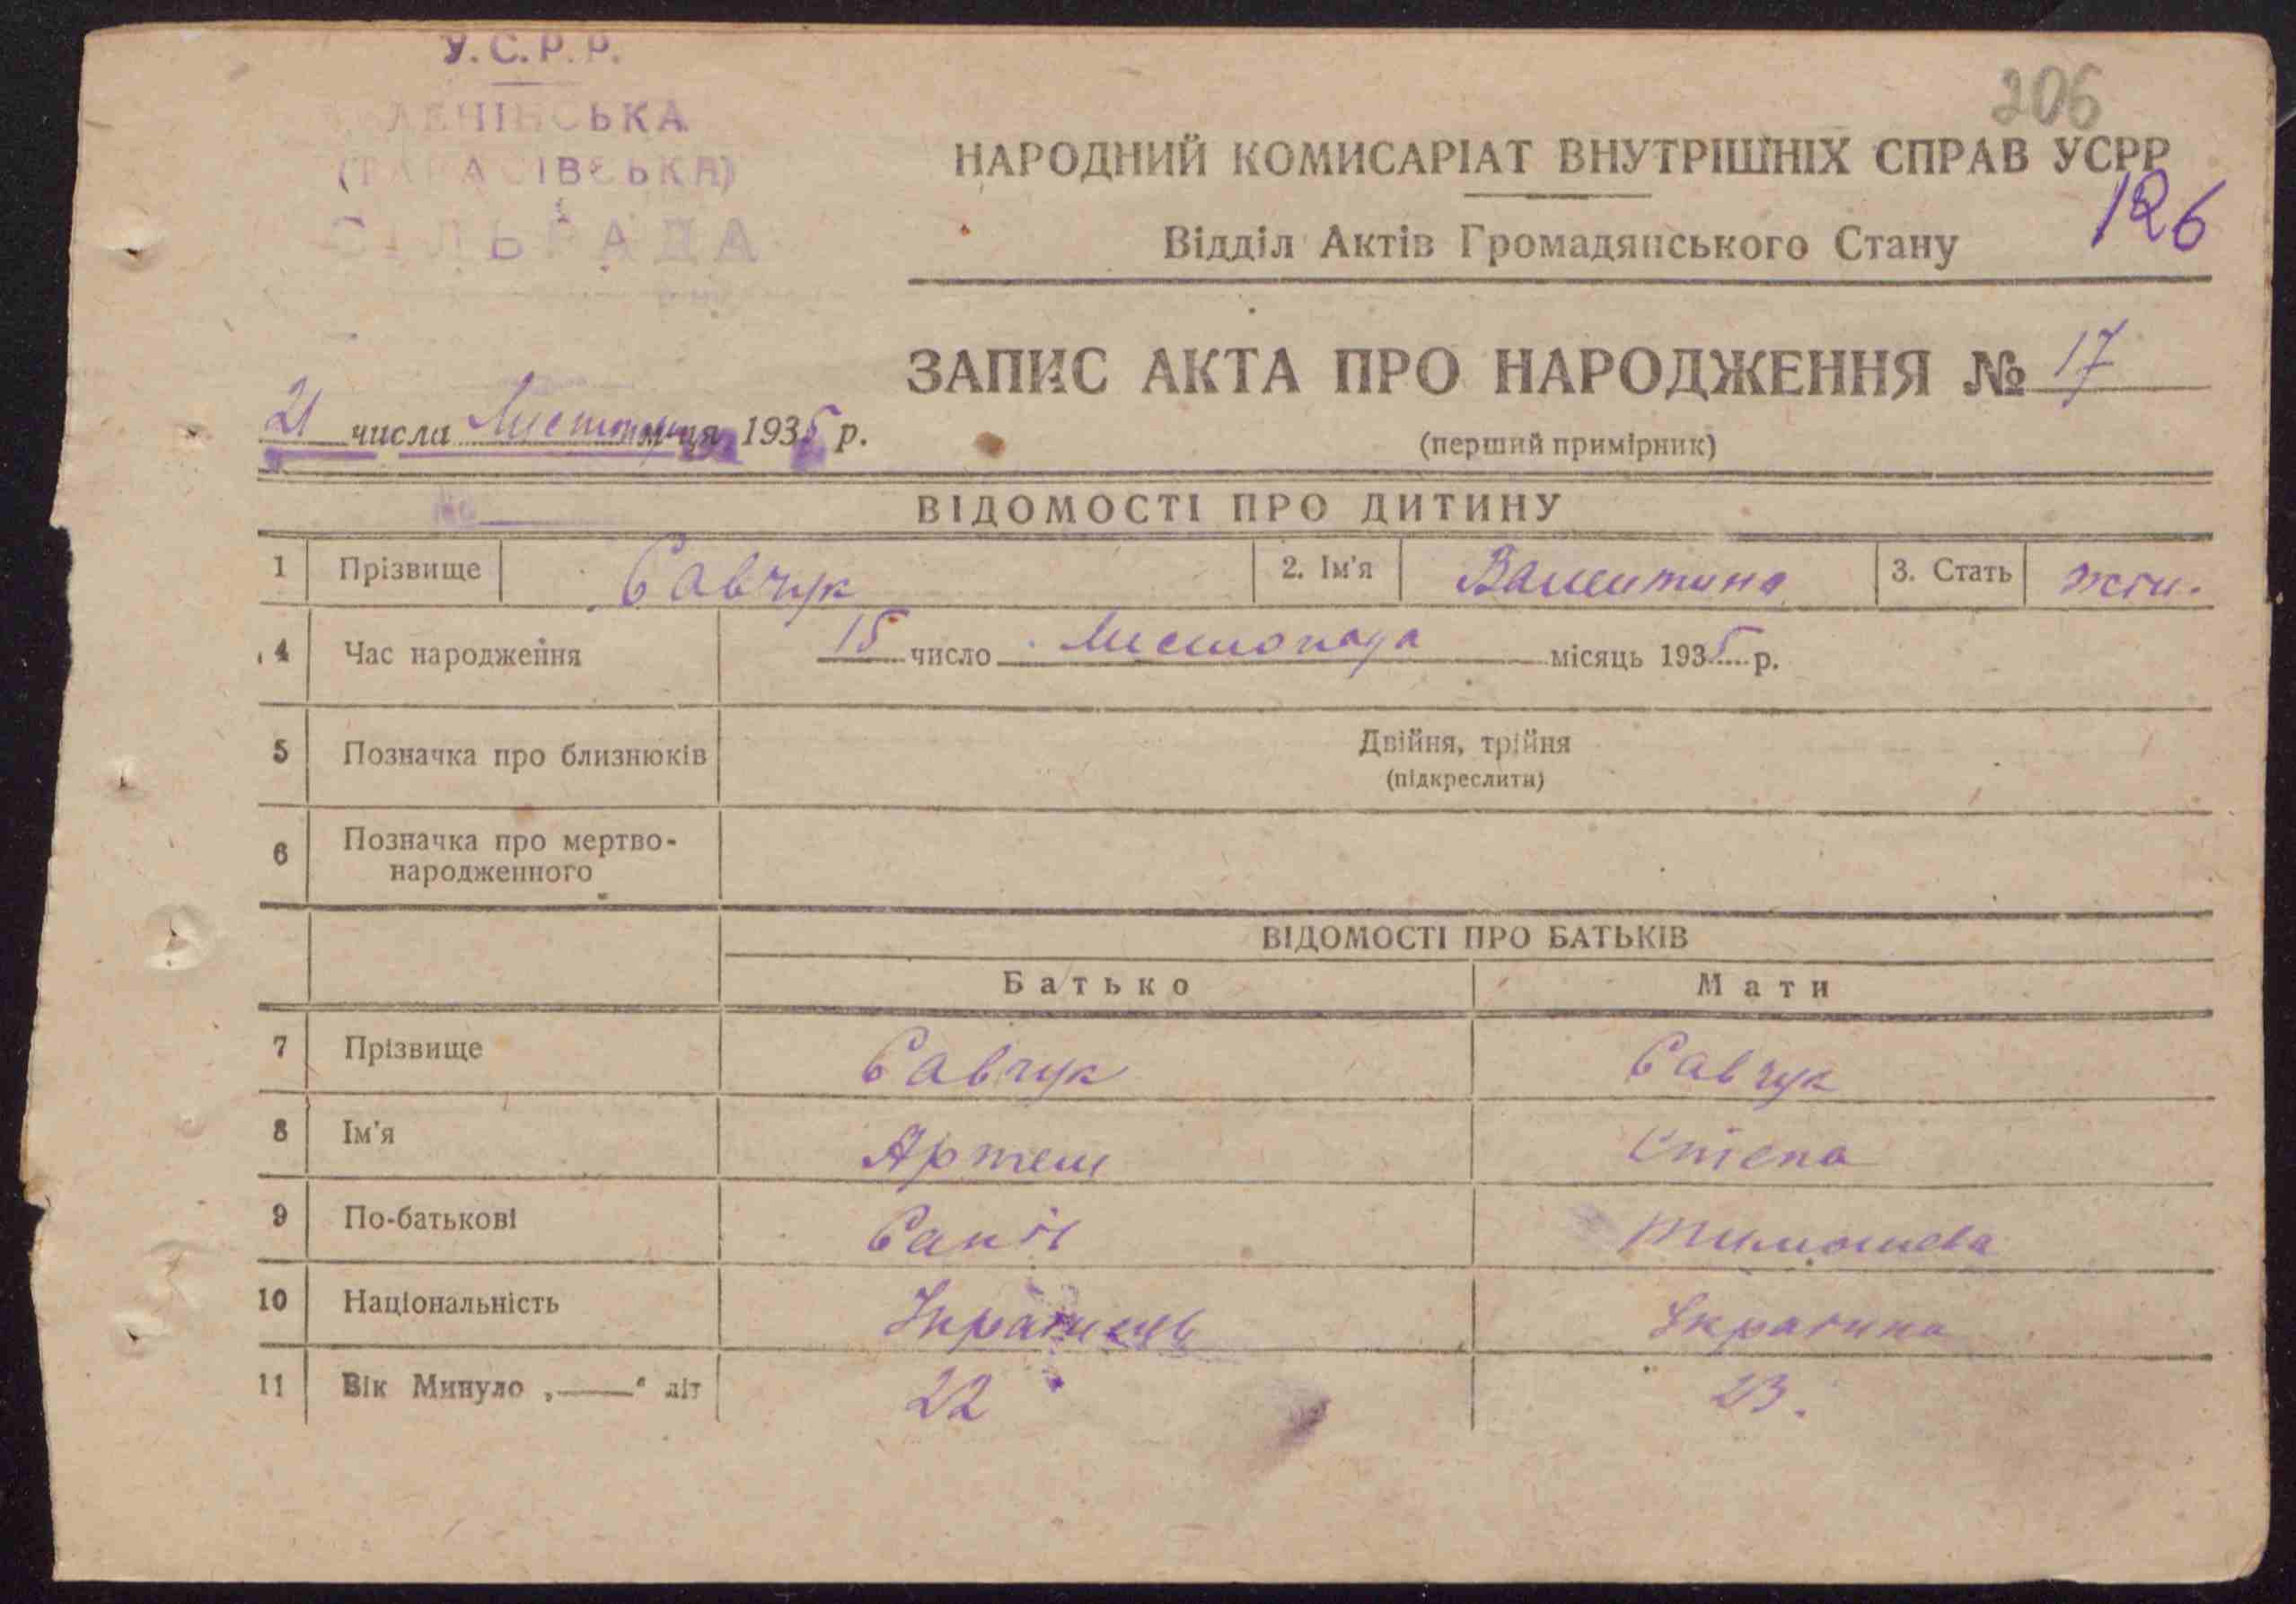 У.С.Р.Р.
(ТАРАСІВСЬКА)
СІЛЬРАДА
206
НАРОДНИЙ КОМИСАРІАТ ВНУТРІШНІХ СПРАВ УСРР
126
Відділ Актів Громадянського Стану
ЗАПИС АКТА ПРО НАРОДЖЕННЯ № 17
21 числа Листопада м-ця 1935 р.
(перший примірник)
№
ВІДОМОСТІ ПРО ДИТИНУ
1 Прізвище Савчук 2. Ім'я Валентина 3. Стать жін.
4 Час народження 15 число Листопада місяць 1935 р.
5 Позначка про близнюків Двійня, трійня
(підкреслити)
6 Позначка про мертво-
народженного
ВІДОМОСТІ ПРО БАТЬКІВ
Батько Мати
7 Прізвище Савчук Савчук
8 Ім'я Артем Степа
9 По-батькові Тимошева
10 Національність Українець Українка
11 Вік Минуло „——“ літ 22 23.